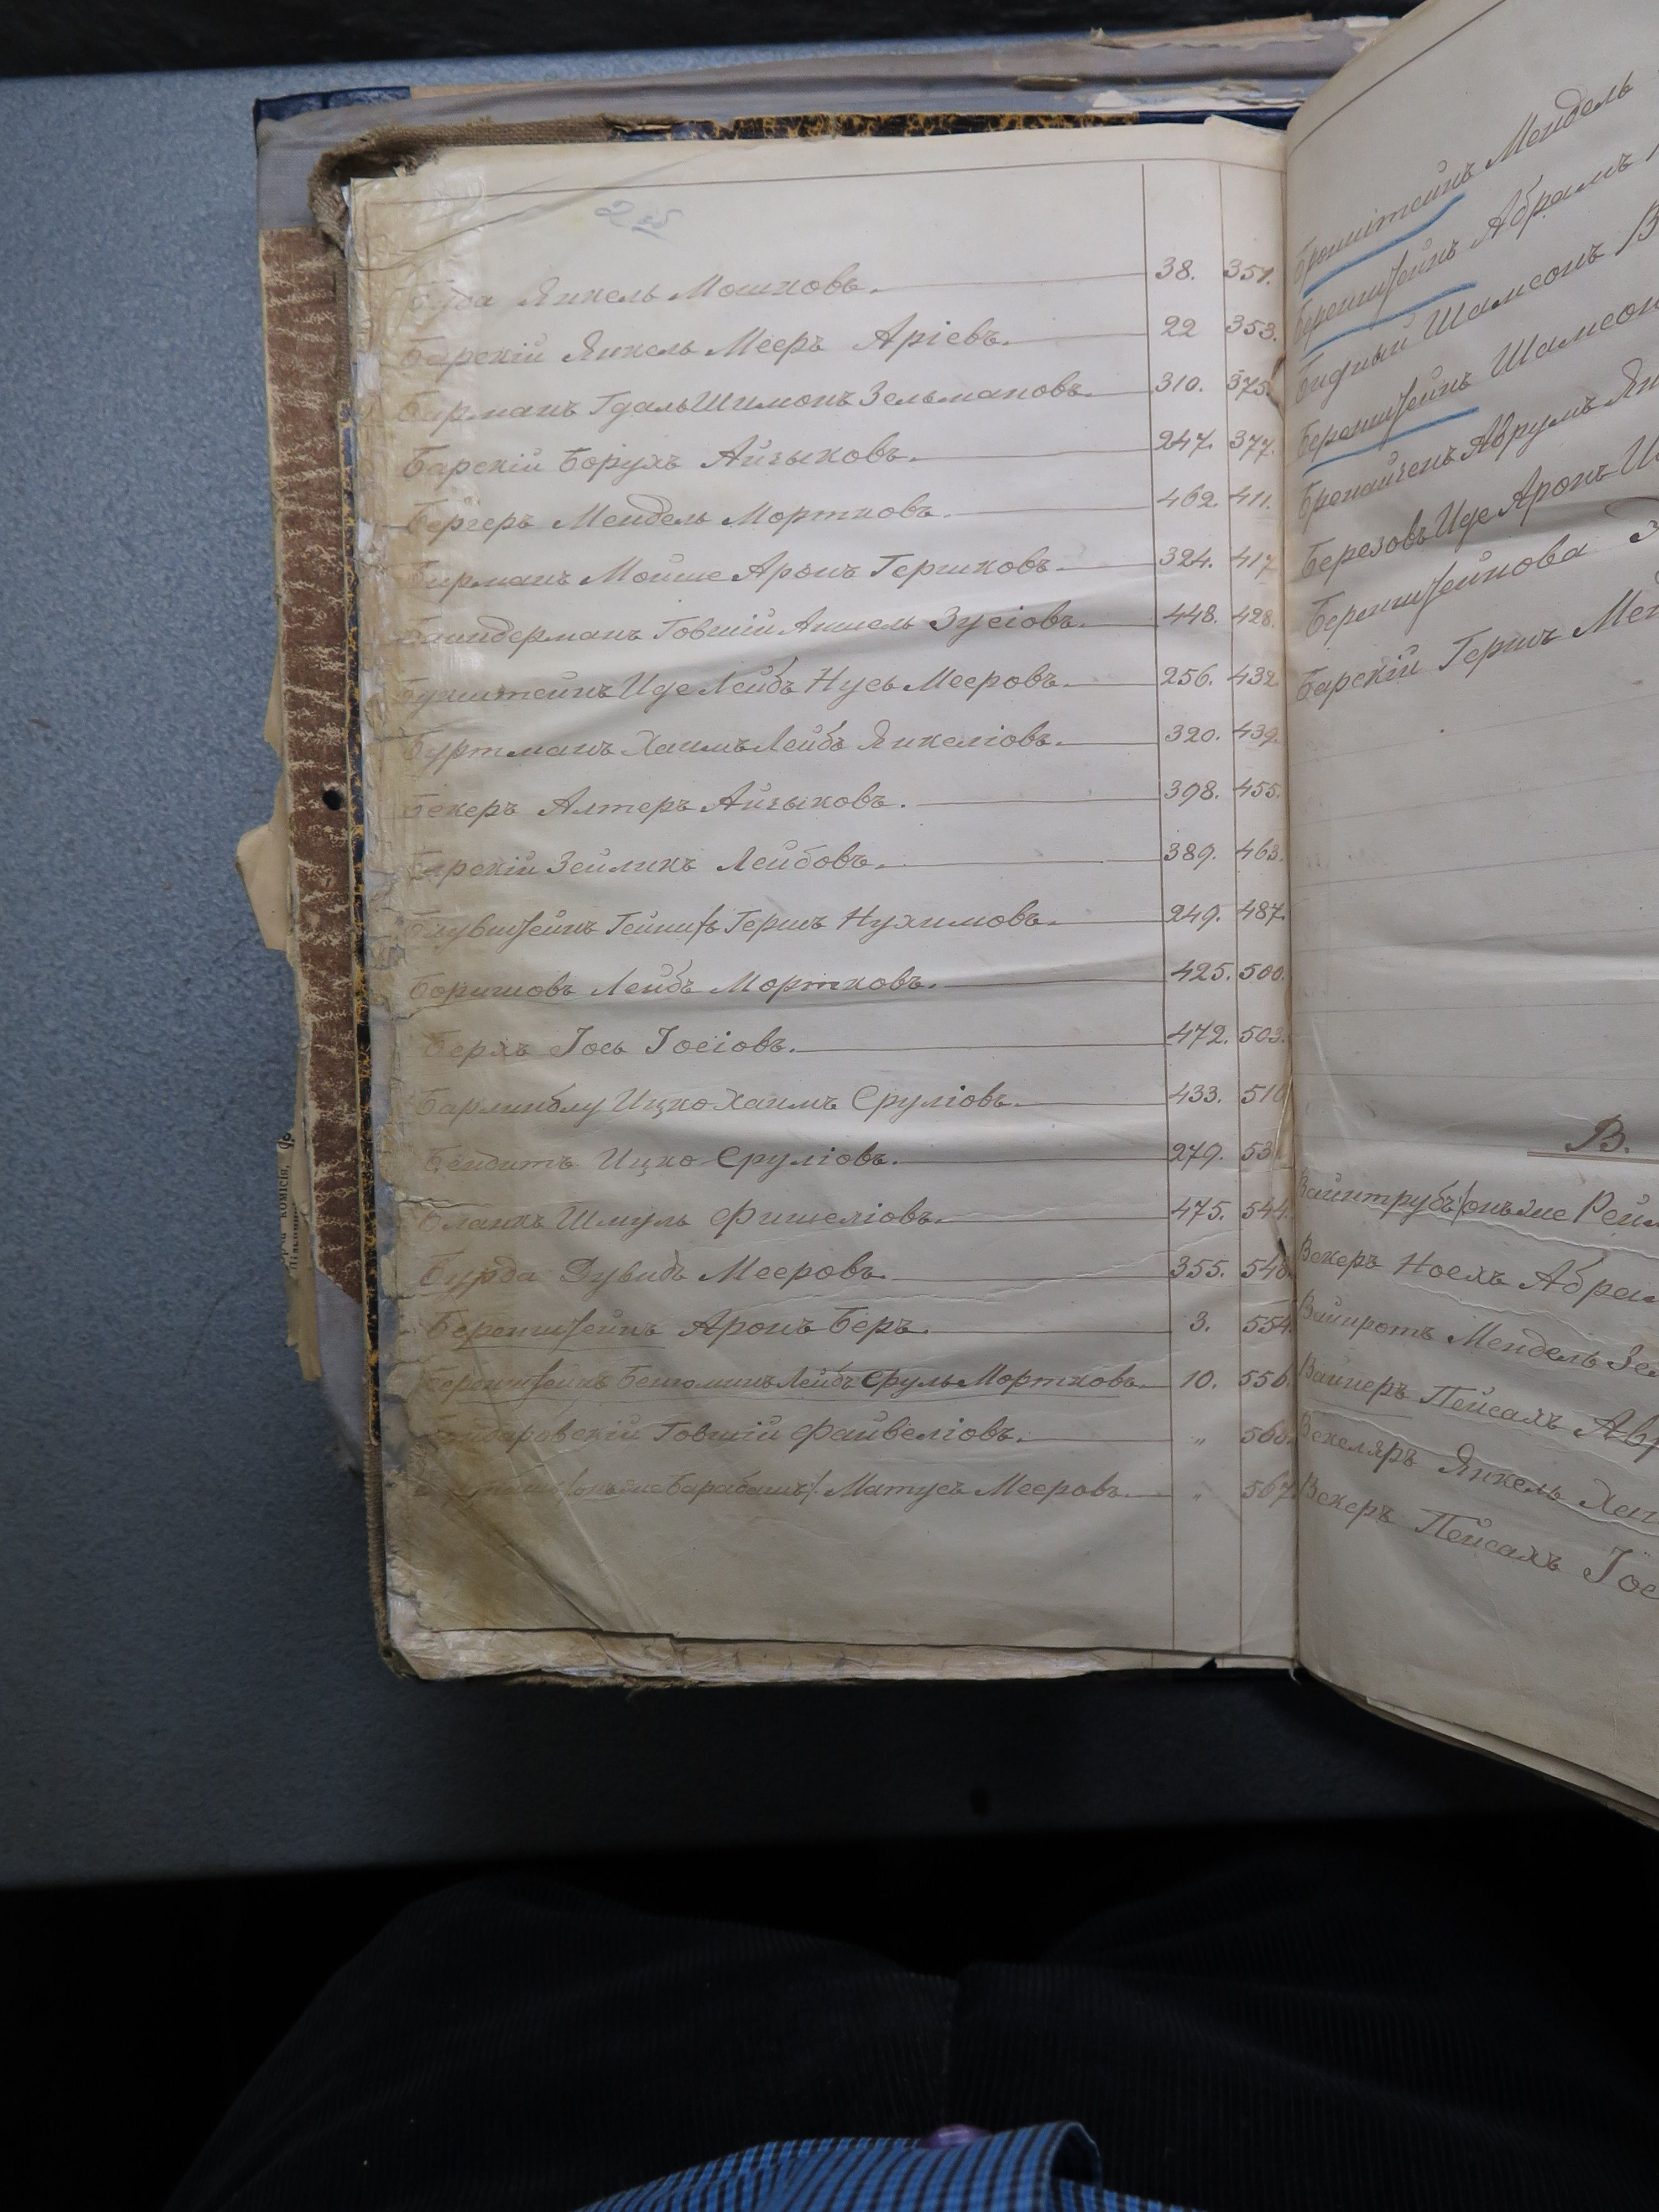 2 об
Буда Янкель Мошковъ. 38. 351.
Барскій Янкель Мееръ Аріевъ. 22 353.
Бирманъ Гдаль Шимонъ Зельмановъ. 310. 375.
Барскій Борухъ Айзыковъ. 247. 377.
Бергеръ Мендель Мортковъ. 462. 411.
Бирманъ Мойше Аронъ Гершковъ. 324. 417
Говшій Аншель Зусіовъ. 448. 428.
Букштейнъ Иде Лейбъ Нусь Мееровъ. 256. 432
Буртманъ Хаимъ Лейбъ Янкеліовъ. 320. 439.
Бекеръ Алтеръ Айзыковъ. 398. 455.
Барскій Зейликъ Лейбовъ. 389. 463.
Геринъ Нухимовъ. 249. 487.
Боришовъ Лейбъ Мортковъ. 425. 500.
Берхъ Іось Іосіовъ. 472. 503.
Бармаиблу Ицко Хаимъ Сруліовъ. 433. 510
Бендитъ Ицко Сруліовъ. 279. 53
Бланкъ Шмуль Фишеліовъ. 475. 544.
Бурда Дувидъ Мееровъ. 355. 548.
Беренштейнъ Аронъ Беръ. 3. 554.
Беренштейнъ Бенюминъ Лейбъ Сруль Мортковъ. 10. 556.
Говшій Файвеліовъ. „ 560.
/онъ же Барабашъ/. Матусъ Мееровъ. „ 567.
Бронштейнъ Мендель
Беренштейнъ Абрамъ
Бидный Шамсонъ В
Беренштейнъ Шамсон
Бронайченъ Аврумъ Ян
Березовъ Иде Аронъ И
Беренштейнова З
Барскій Гершъ Мен
В.
Вайнтрубъ /онъ же Рейз
Векеръ Ноехъ Абрам
Вайнротъ Мендель Зе
Вайнеръ Пейсахъ Авр
Векеляръ Янкель Хаи
Векеръ Пейсахъ Іос
комісія,